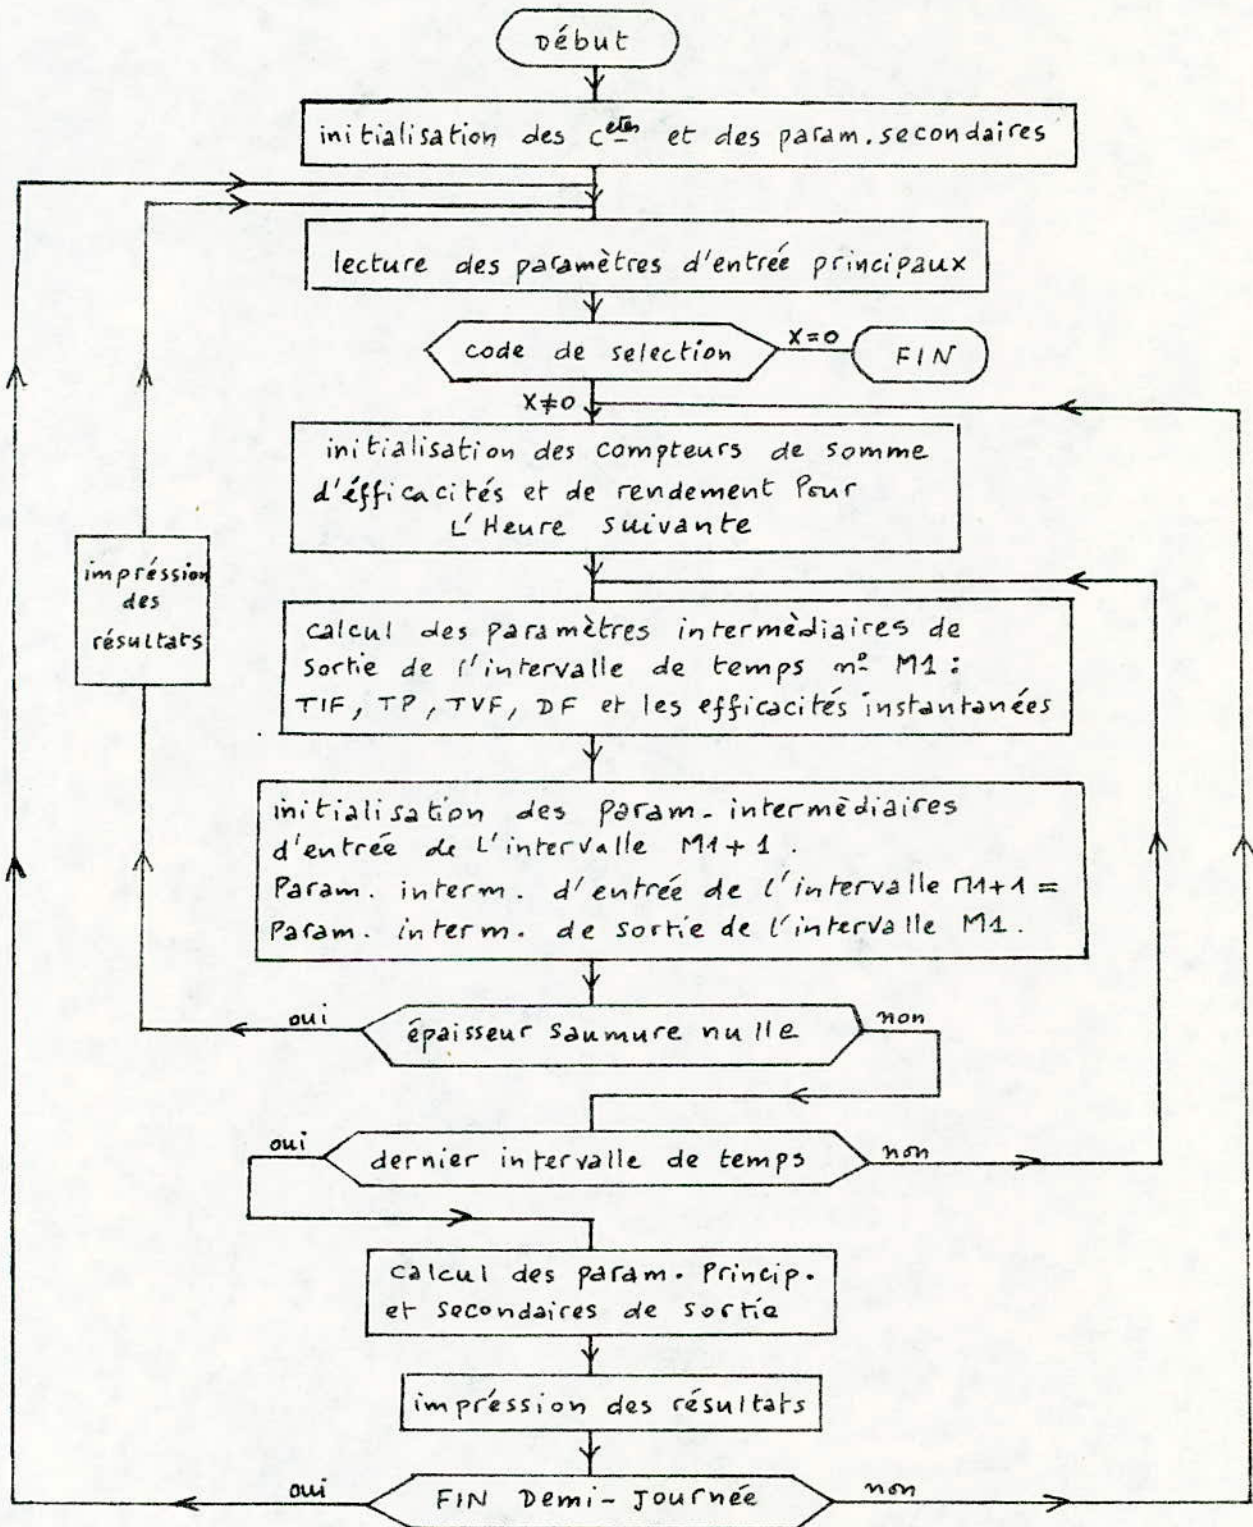 Début
initialisation des c^etes et des param. secondaires
lecture des paramètres d'entrée principaux
code de selection
X=0
FIN
X≠0
initialisation des compteurs de somme
d'éfficacités et de rendement Pour
L'Heure suivante
impréssion
des
résultats
calcul des paramètres intermèdiaires de
sortie de l'intervalle de temps nº M1 :
TIF, TP, TVF, DF et les efficacités instantanées
initialisation des Param. intermèdiaires
d'entrée de L'intervalle M1+1.
Param. interm. d'entrée de l'intervalle M1+1 =
Param. interm. de sortie de l'intervalle M1.
oui
épaisseur saumure nulle
non
oui
dernier intervalle de temps
non
calcul des param. Princip.
et secondaires de sortie
impréssion des résultats
oui
FIN Demi-Journée
non